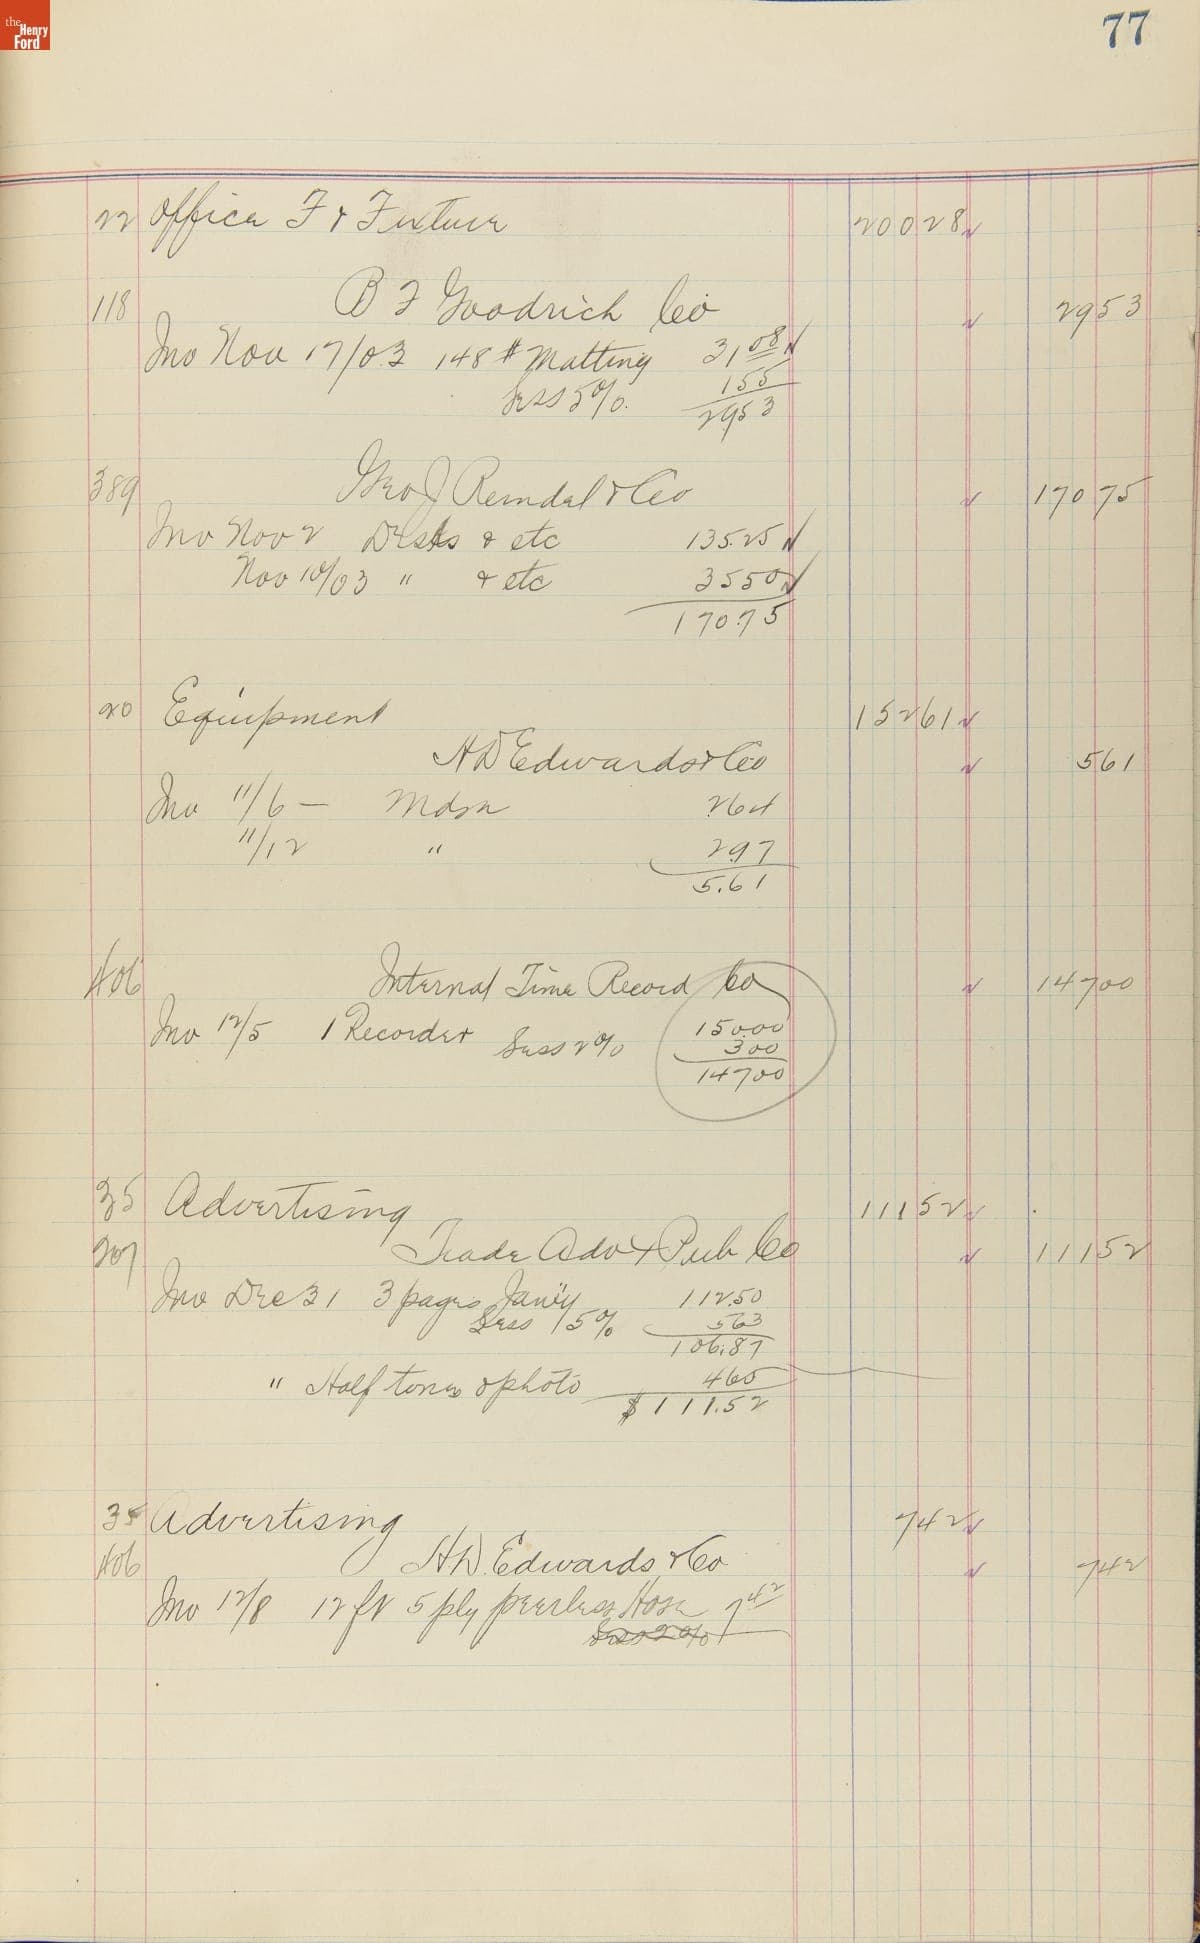 the Henry Ford
77
22 Office F & Fixture 200 28
118 B F Goodrich Co 29 53
Inv Nov 17/03 148 # Matting 31 08
Less 5%. 1 55
29 53
389 Geo J Reindel & Co 170 75
Inv Nov 2 Desks & etc 135.25
Nov 10/03 " & etc 35 50
170.75
20 Equipment 152 61
H D Edwards & Co 5 61
Inv 11/6 — Mdse 2.64
11/12 " 2.97
5.61
406 Internal Time Record Co 147 00
Inv 12/5 1 Recorder 150.00
Less 2% 3 00
147 00
35 Advertising 111 52
207 Trade Adv & Pub Co 111 52
Inv Dec 31 3 pages Jan'y 112.50
Less 5% 5 63
106.87
" Half tones & photo 4 65
$ 111.52
35 Advertising 7 42
406 H.D. Edwards & Co 7 42
Inv 12/8 12 ft 5 ply peerless Hose 7 42
Less 2%